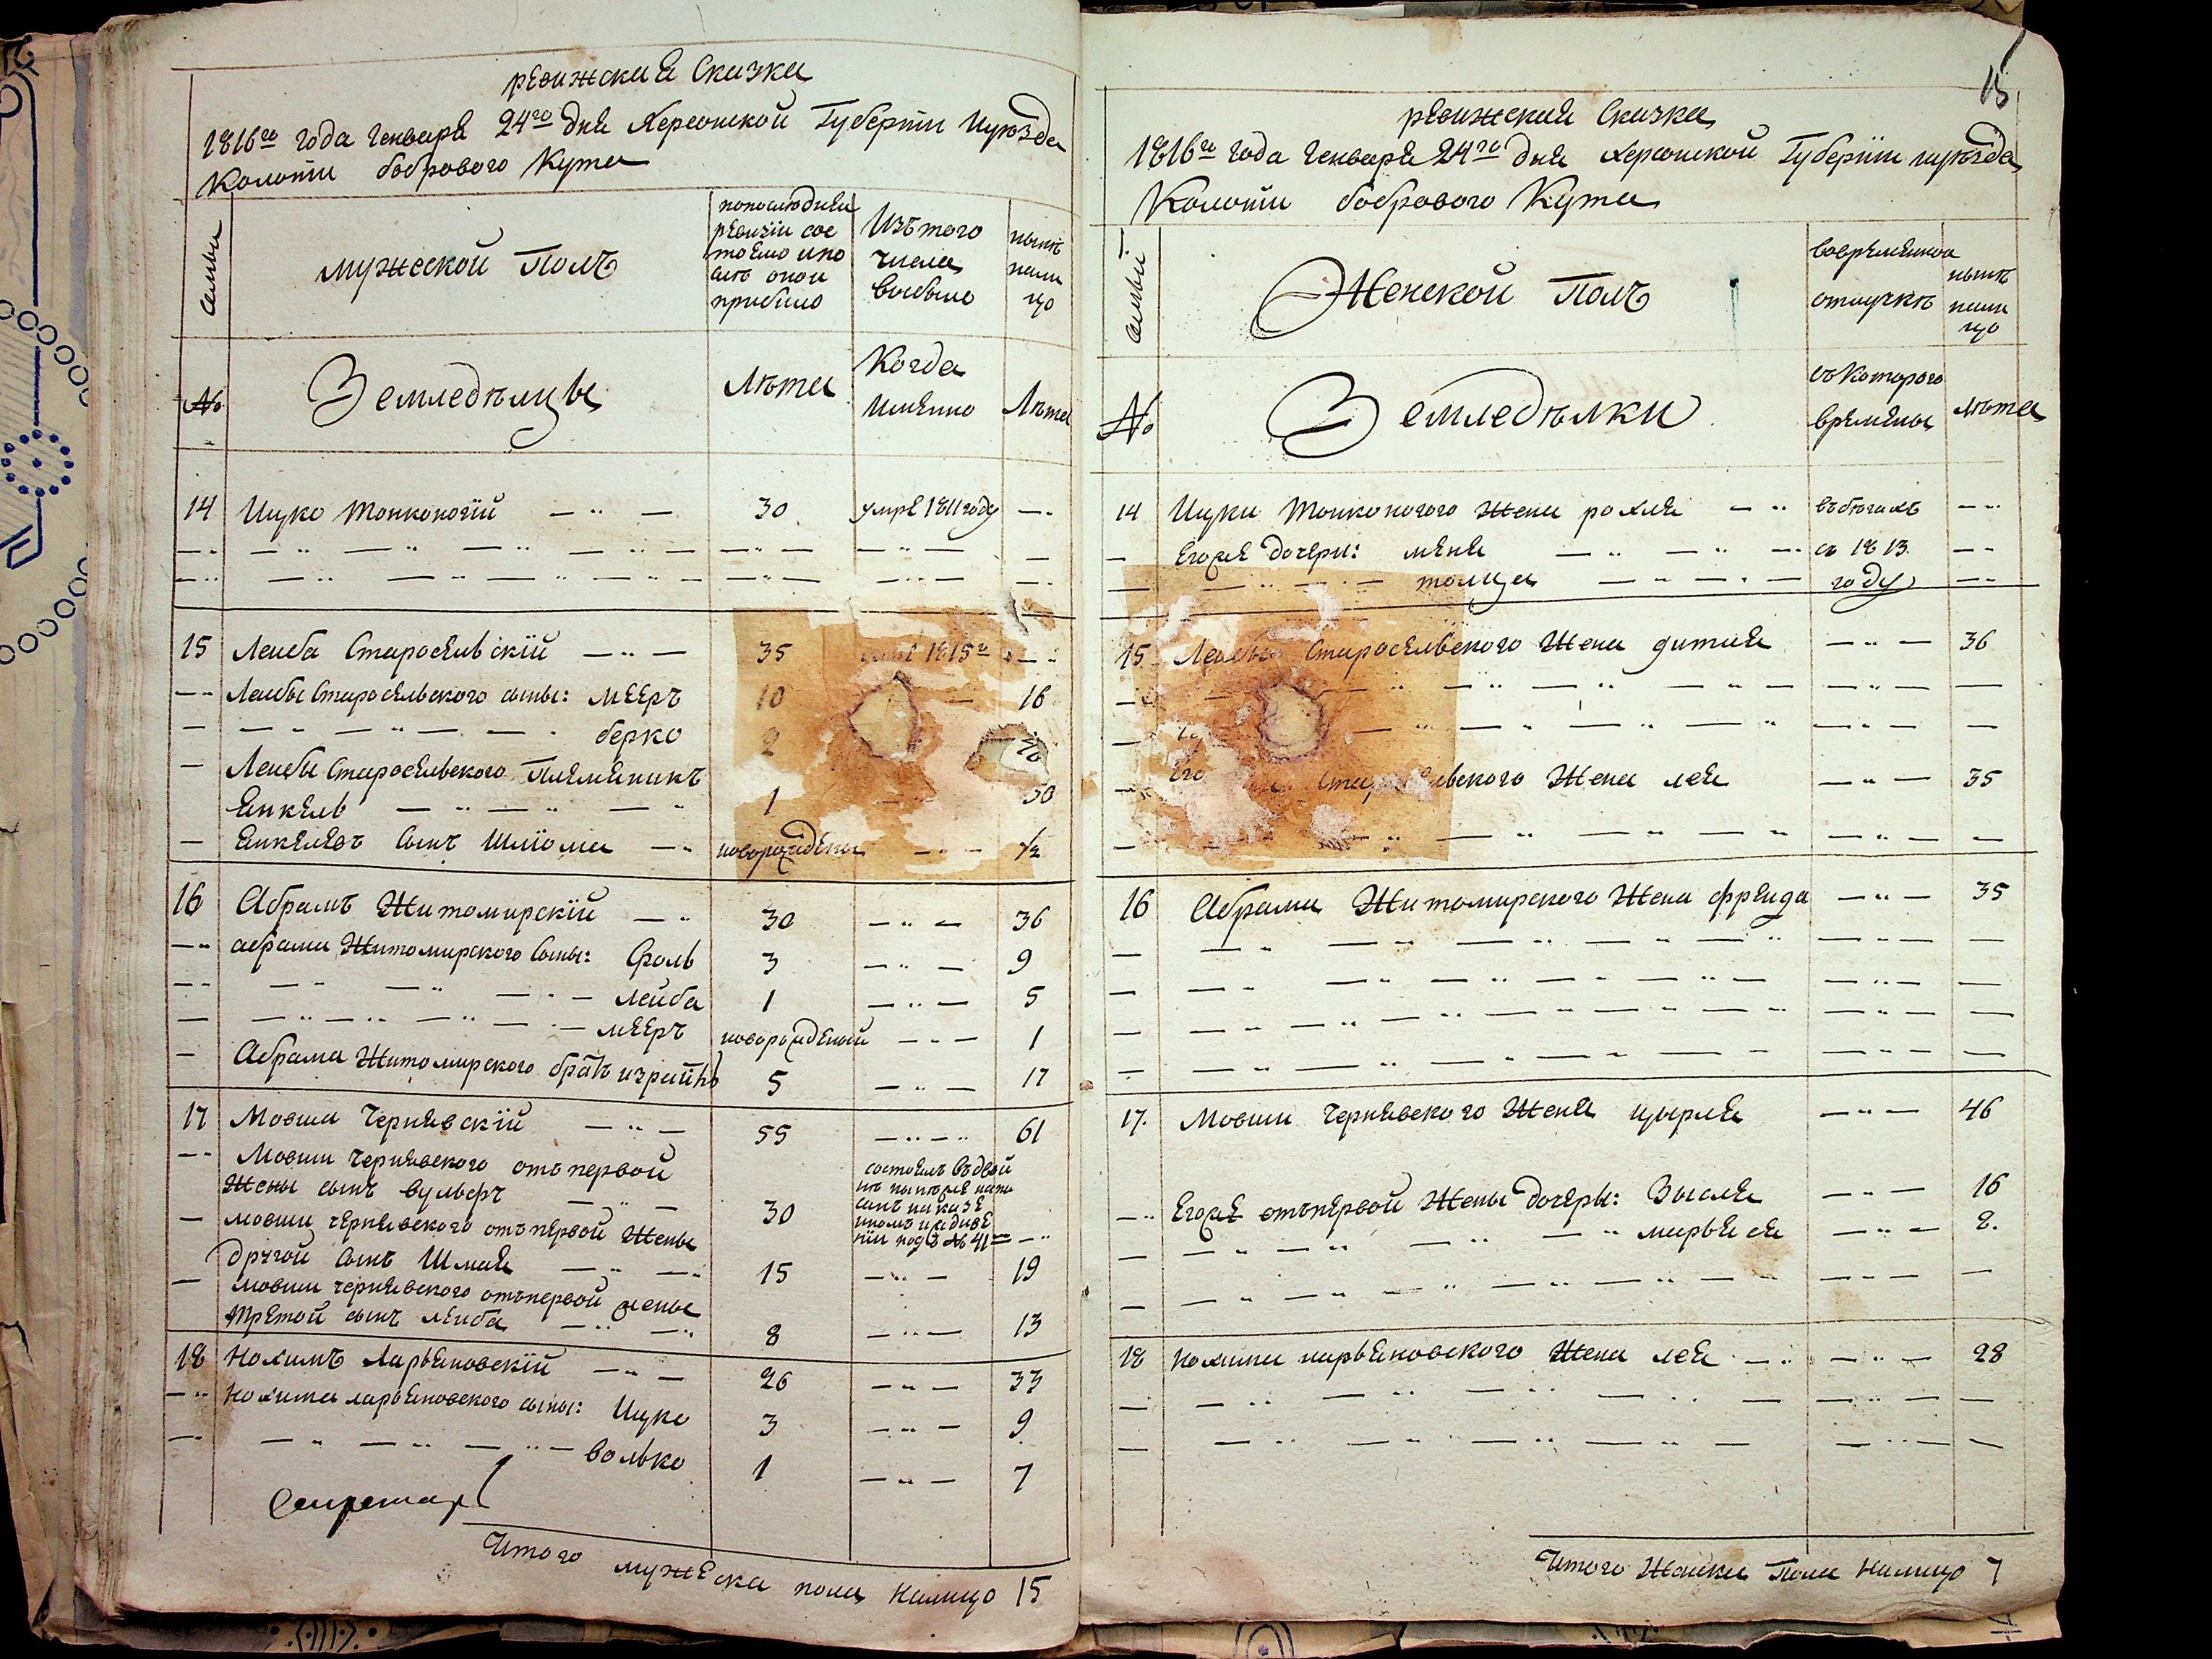 ревижская Сказка
1816го года генваря 24го дня Херсонской Губерніи и уѣзда
Колоніи бобрового Кута
семьи
мужеской Полъ
попоследней
ревизіи сос
тояло и по
слѣ оной
прибыло
Изъ того
числа
выбыло
нынѣ
нали
цо
№
Земледѣльцы
Лѣта
Когда
имянно
Лѣта
14 Ицко Тонконогій 30 умре 1811 году
15 Лейба Старосельскій 35 1815го
Лейбы Старосельского сыны: мееръ 10 16
берко 2
Лейбы Старосельского Племяникъ
Янкель 1 30
Янкелевъ сынъ Шліома новорожденъ ½
16 Абрамъ Житомирскій 30 36
абрама Житомирского сыны: Сроль 3 9
лейба 1 5
мееръ новорожденой 1
Абрама Житомирского братъ израиль 5 17
17 Мовша Чернявскій 55 61
Мовши чернявского отъ первой
Жены сынъ вульфъ 30
мовши чернявского отъ первой Жены
другой сынъ Шмая 15 19
мовши чернявского отъ первой жены
третой сынъ лейба 8 13
18 Нохимъ ларьяновскій 26 33
Нохима ларьяновского сыны: Ицко 3 9
волько 1 7
Секретарь
Итого мужеска пола налицо 15
15
ревижская Сказка
1816го года генваря 24го дня херсонской Губерніи и уѣзда
Колоніи бобрового Кута
семьи
Женской Полъ
вовременной
отлучкѣ
нынѣ
нали
цо
№
Земледѣлки
съ Которого
времены
лѣта
14 Ицки Тонконогого жена рохля въ бѣгахъ
Егоже дочери: меня съ 1813
толца году
15 Лейбы Старосельского Жена дитля 36
Жена лея 35
16 Абрама Житомирского Жена фрейда 35
17. Мовши чернявского Жена цырля 46
Егоже отъ первой Жены дочеры: Зысля 16
марьяся 8.
18 нохима ларьяновского Жена лея 28
Итого Женска Пола Налицо 7